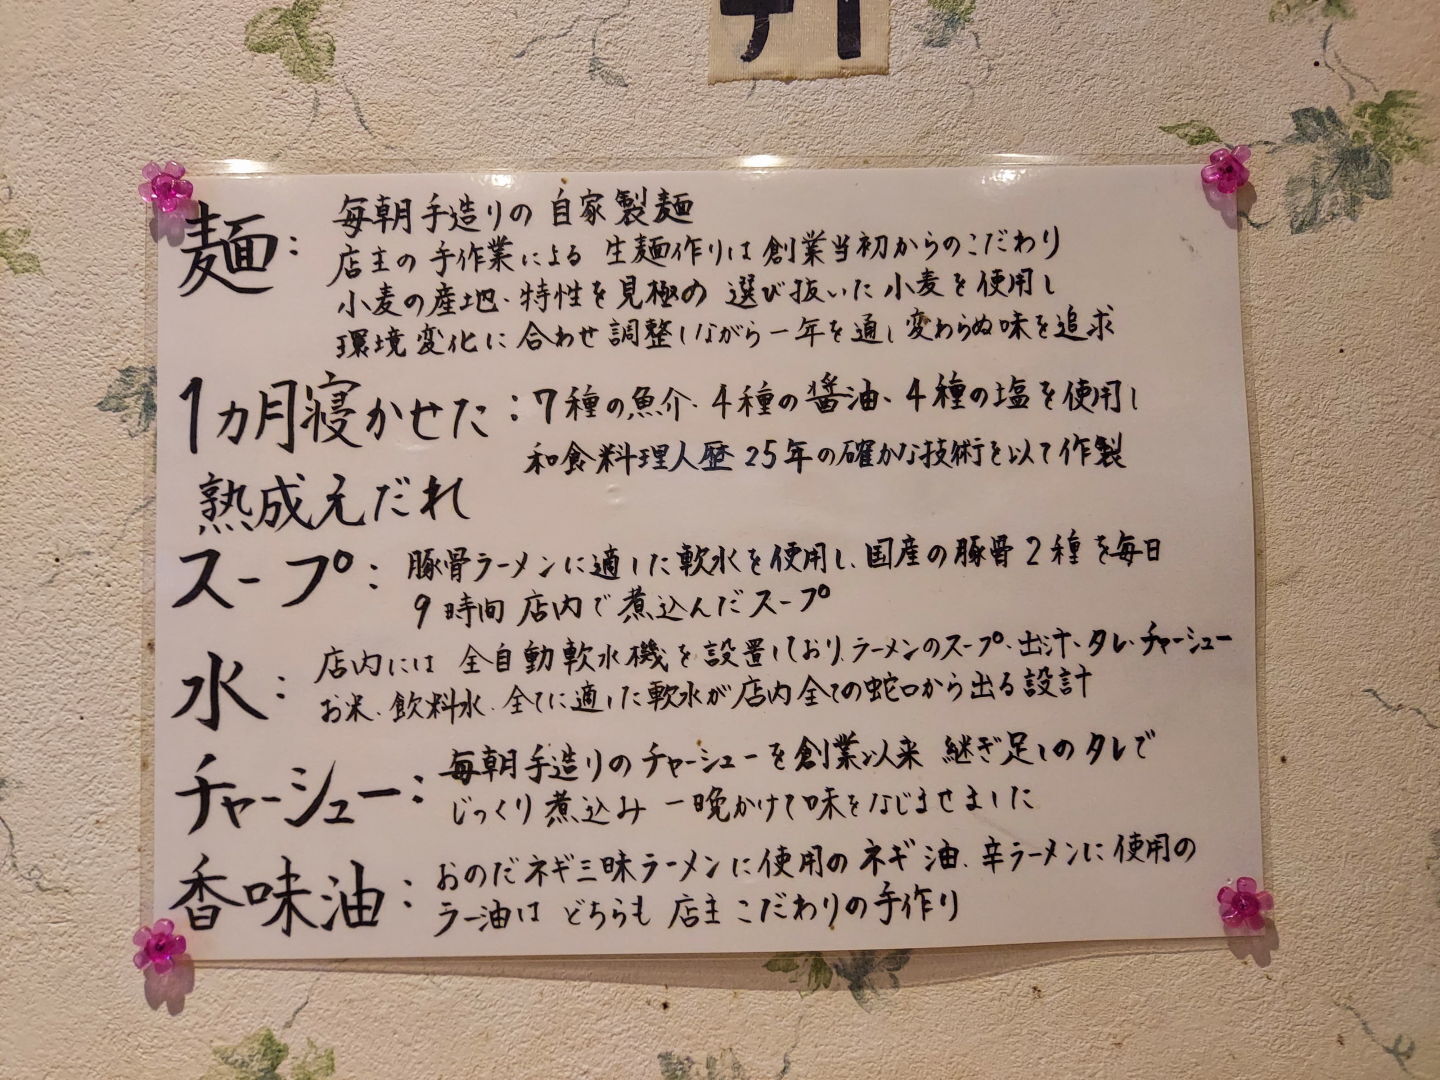 麺: 毎朝手造りの 自家製麺
店主の手作業による 生麺作りは創業当初からのこだわり
小麦の産地、特性を見極め 選び抜いた小麦を使用し
環境変化に合わせ調整しながら一年を通し変わらぬ味を追求
1カ月寝かせた: 7種の魚介、4種の醤油、4種の塩を使用し
熟成元だれ 和食料理人歴25年の確かな技術を以て作製
スープ: 豚骨ラーメンに適した軟水を使用し、国産の豚骨2種を毎日
9時間店内で煮込んだスープ
水: 店内には 全自動軟水機を設置しており、ラーメンのスープ、出汁、タレ、チャーシュー
お米、飲料水、全てに適した軟水が店内全ての蛇口から出る設計
チャーシュー: 毎朝手造りのチャーシューを創業以来 継ぎ足しのタレで
じっくり煮込み 一晩かけて味をなじませました
香味油: おのだネギ三昧ラーメンに使用のネギ油、辛ラーメンに使用の
ラー油は どちらも 店主こだわりの手作り